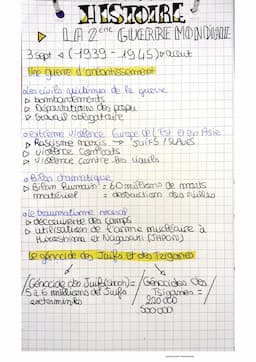 HISTOIRE
▷ LA 2ème GUERRE MONDIALE
3 sept ← (1939 - 1945) → aout
Une guerre d'anéantissement
Les civils victimes de la guerre
▷ bombardements
▷ Déportations des popu
▷ travail obligatoire
extrême violence Europe de l'Est et en Asie
▷ Racisme nazis → Juifs / SLAVES
▷ violence combats
▷ violence contre les civils
Bilan dramatique
▷ Bilan humain = 60 millions de morts
matériel = destruction des villes
le traumatisme moral
▷ découverte des camps
▷ utilisation de l'arme nucléaire à
Hiroshima et Nagasaki (JAPON)
Le génocide des Juifs et des Tziganes
Génocide des Juifs = Génocides des
5 à 6 millions de Juifs Tsiganes =
exterminés 220 000
500 000